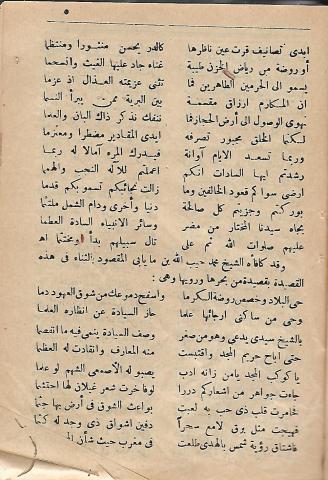 ابدى تصانيف قرت عين ناظرها كالدر بحسن منثورا ومنتظما
أو روضة من رياض الحزن طيبة غناء جاد عليها الغيث وانسجما
يسمو الى الحرمين الطاهرين فما تثنى عزيمته العذال اذ عزما
ان المكارم ارزاق مقسمة بين البرية ممن يبرأ النسما
نهوى الوصول الى أرض الحجاز فما ننفك نذكر ذاك البان والعلما
لكنما الخلق مجبور تصرفه ابدى المقادير مضطرا ومعتزما
وربما تسعد الايام آونة فيدرك المرء آمالا له ربما
رشدتم ايها السادات انكم اعملتم للاله النجب والهمما
ارضى سواكم قعود الخالفين وما زالت نجائبكم تسمو بكم قدما
بوركتم وجزيتم كل صالحة دنيا وأخرى ودام الشمل ملتئما
بجاه سيدنا المختار من مضر وسائر الانبياء السادة العظما
عليهم صلوات الله ثم على تال سبيلهم بدأ ومختتما اه
وقد كافأه الشيخ محمد حبيب الله بن مايابى المقصود الثناء فى هذه
القصيدة بقصيدة من بحرها ورويها وهى :
حى البلاد وخصص روضة الكرما واسفح دموعك من شوق العهود دما
وحى من ساكنى ارجائها علما حاز السيادة عن انظاره العلما
بالشيخ سيدى يدعى وهو من صغر وصف السيادة ينمى فيه ما انفصما
حتى اباح حريم المجد واقتبست منه المعارف وانقادت له العظما
يا كوكب المجد يامن زانه ادب يصبو له الاصمعى الشهم لو علما
جاءت جواهر من اشعاركم دررا لو فاخرت شعر غيلان لها احتشما
فخامرت قلب ذى حب به لعبت بواعث الشوق فى أرض بها جثما
فهيجت مثل برق لامع سحرا دفين اشواق ذى وجد له كتما
فاشتاق رؤية شمس بالهدى طلعت فى مغرب حيث شأن